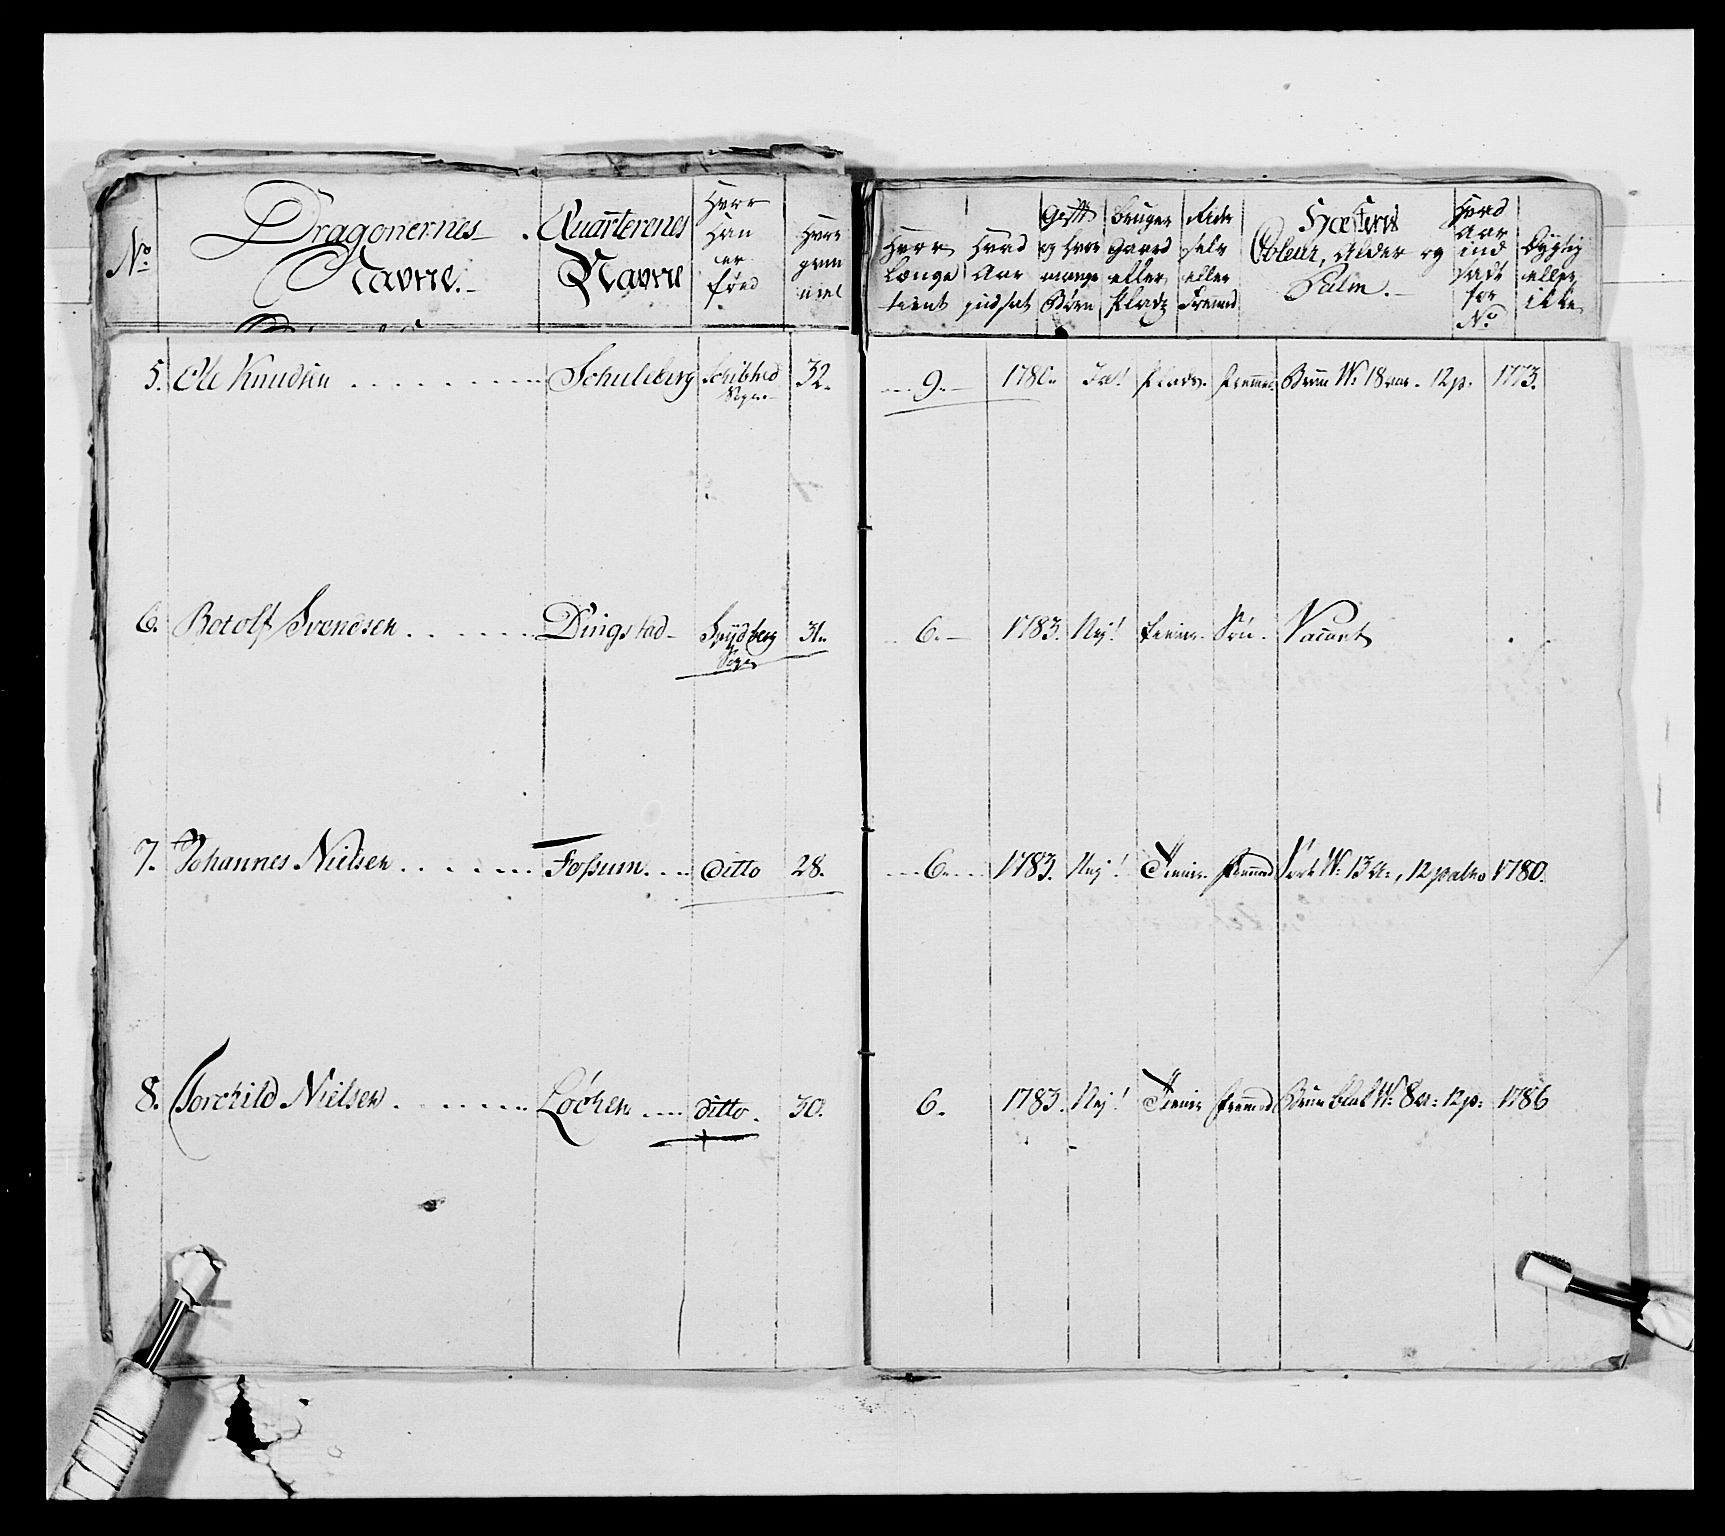 No. Dragonernes Navne. Quarterenes Navne Hvor Han er fød Hvor gammel Hvor længe tient Hvad Aar indsat Gift og hvor mange Børn Bruger gaard eller Plads Ride selv eller Fremed Hæstens Couleur, Alder og Palm. Hvad Aar ind sadt for No. Dygtig eller ikke
5. Ole Knudsen Schuleberg Schibtved Sogn 32. 9. 1780. Ja! Plads. Fremed. Brun W: 18 aar. 12 p. 1773.
6. Botolf Svendsen Dingstad Spydberg Sogn 31. 6. 1783. Nej! Tiener. Søn. Vacant
7. Johannes Nielsen Fossum ditto 28. 6. 1783. Nej! Tiener. Fremed Sort W: 13 a:, 12 palm 1780.
8. Torchild Nielsen Løchen ditto. 30. 6. 1783. Nej! Tiener Fremed Brun blal W: 8 a: 12 p: 1786